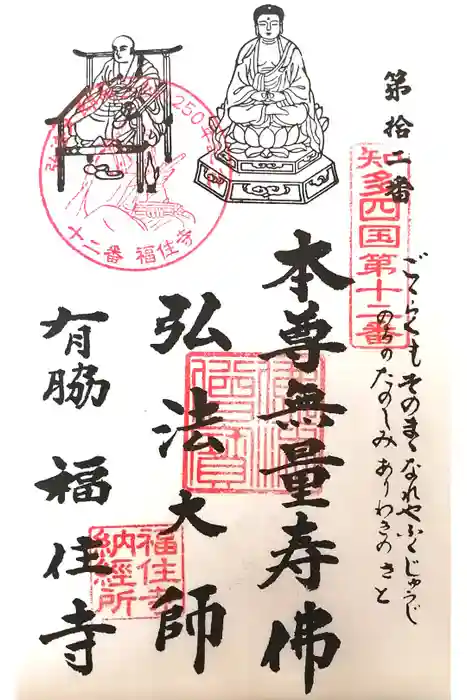 第拾二番
知多四国第十二番
ごくらくも そのまゝなれや ふくじゅうじ
のちのたのしみ ありわきの さと
本尊無量寿佛
弘法大師
有脇 福住寺
十二番 福住寺
福住寺
納経所